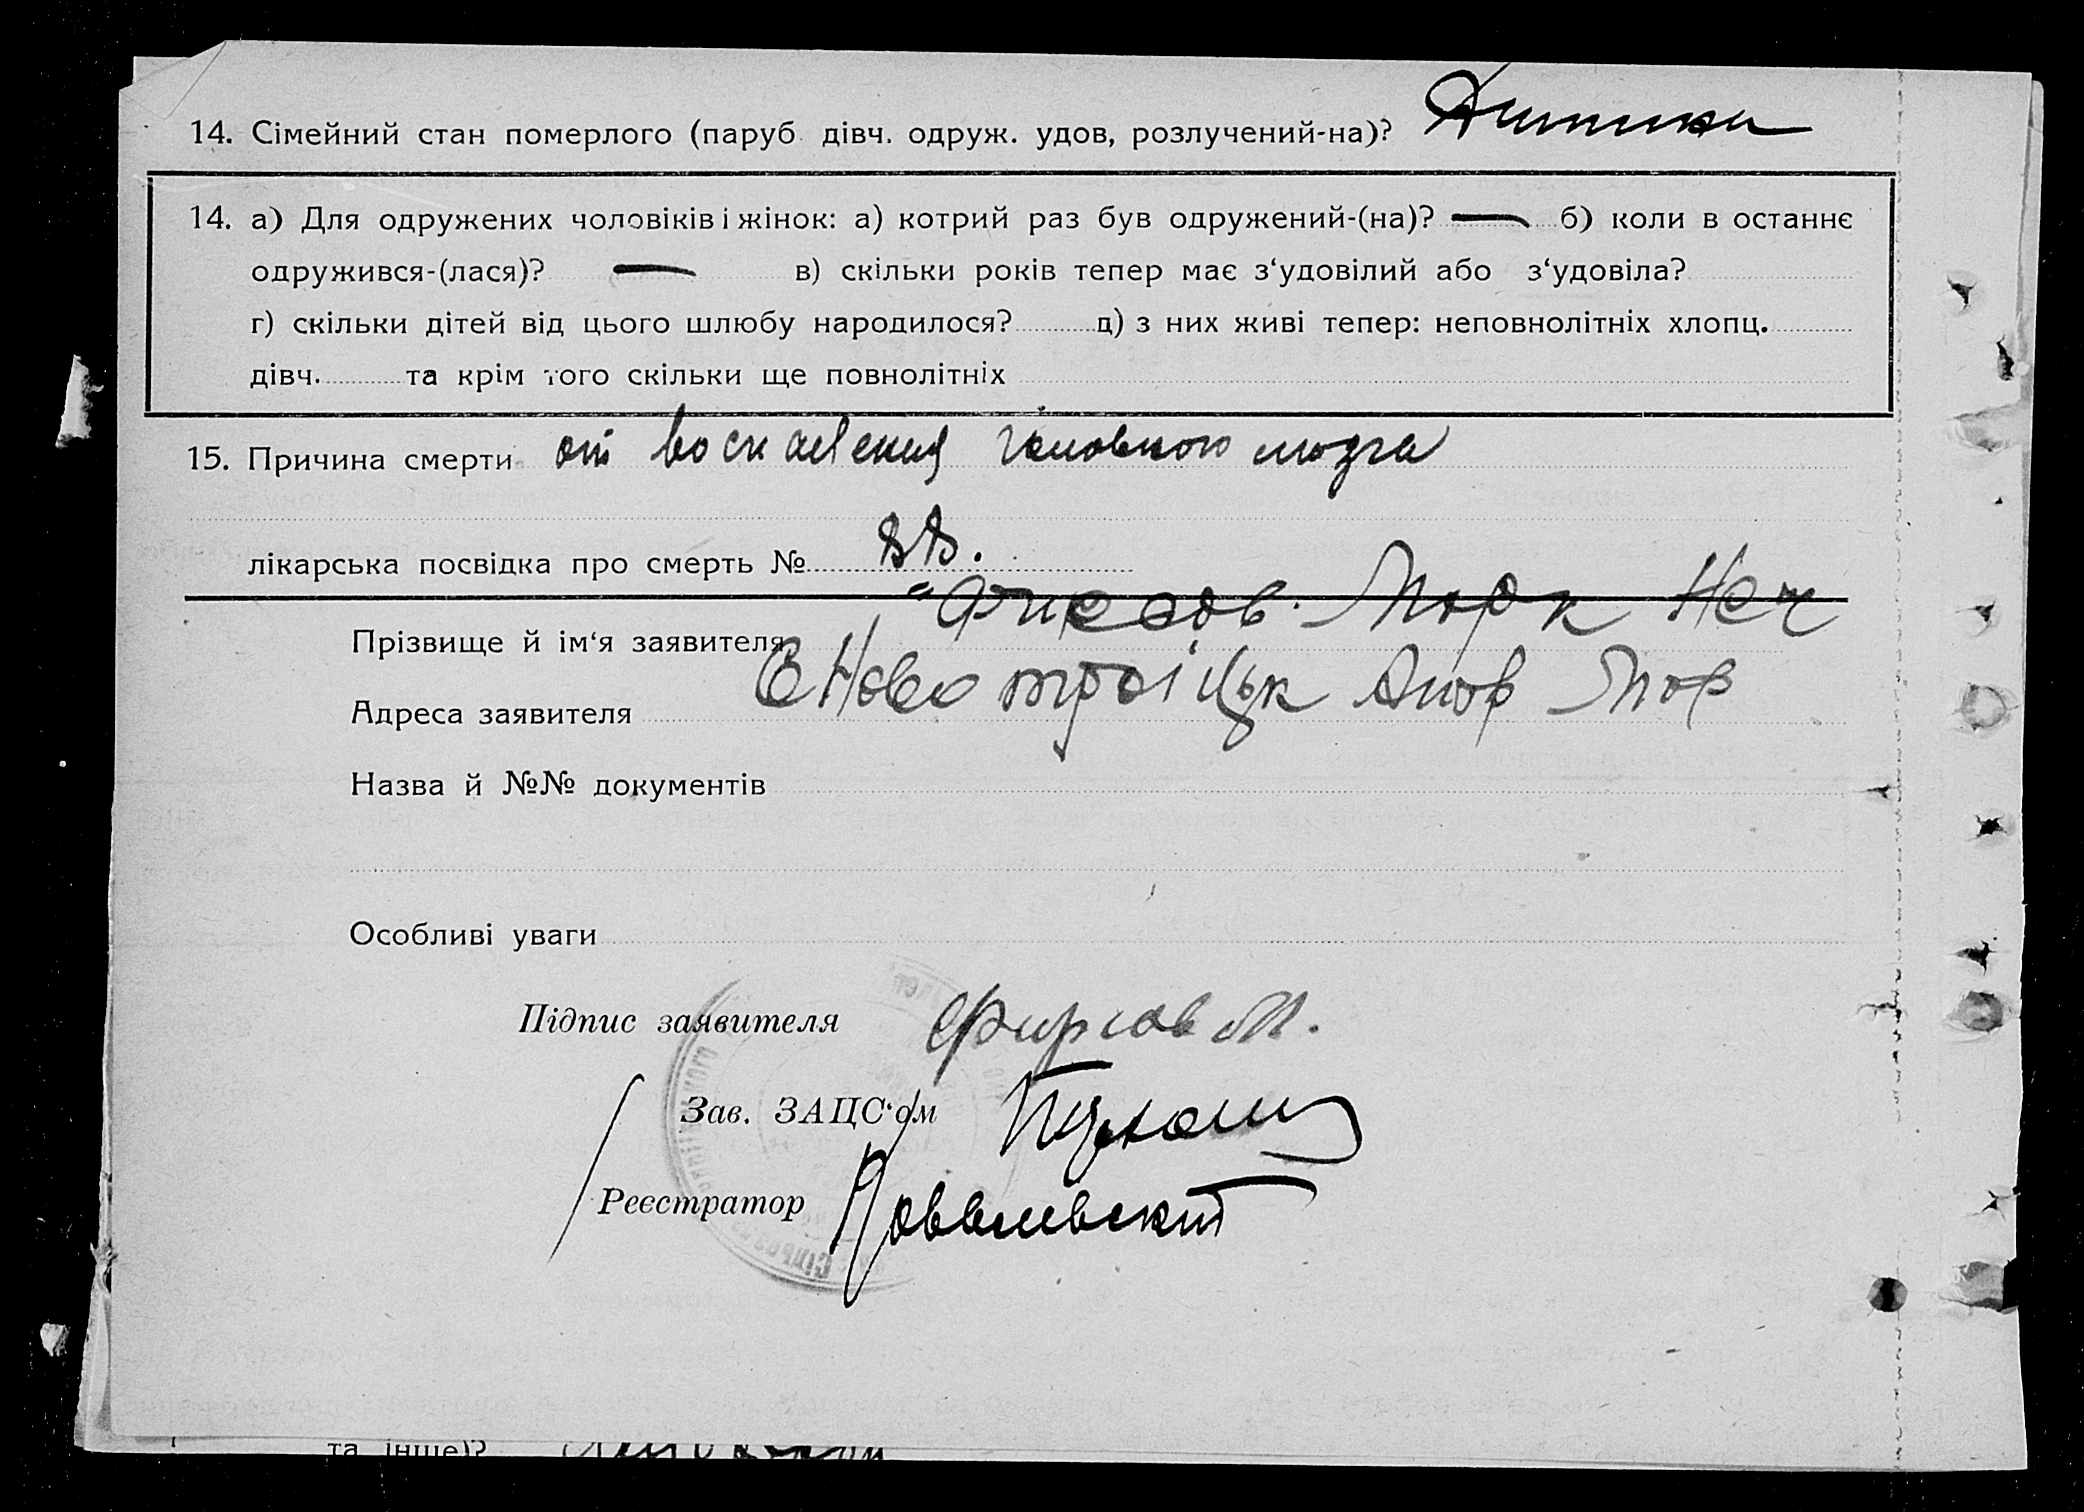 14. Сімейний стан померлого (паруб. дівч. одруж. удов, розлучений-на)? Дитина
14. а) Для одружених чоловіків і жінок: а) котрий раз був одружений-(на)? — б) коли в останнє
одружився-(лася)? — в) скільки років тепер має з‘удовілий або з‘удовіла?
г) скільки дітей від цього шлюбу народилося? д) з них живі тепер: неповнолітніх хлопц.
дівч. та крім того скільки ще повнолітніх
15. Причина смерти от воспаления головного мозга
лікарська посвідка про смерть №
Прізвище й ім‘я заявителя Фирсов Марк
Адреса заявителя С Ново троіцьк
Назва й №№ документів
Особливі уваги
Підпис заявителя Фирсов М.
Зав. ЗАЦС‘ом
Реєстратор Ковалевский
та інше)?